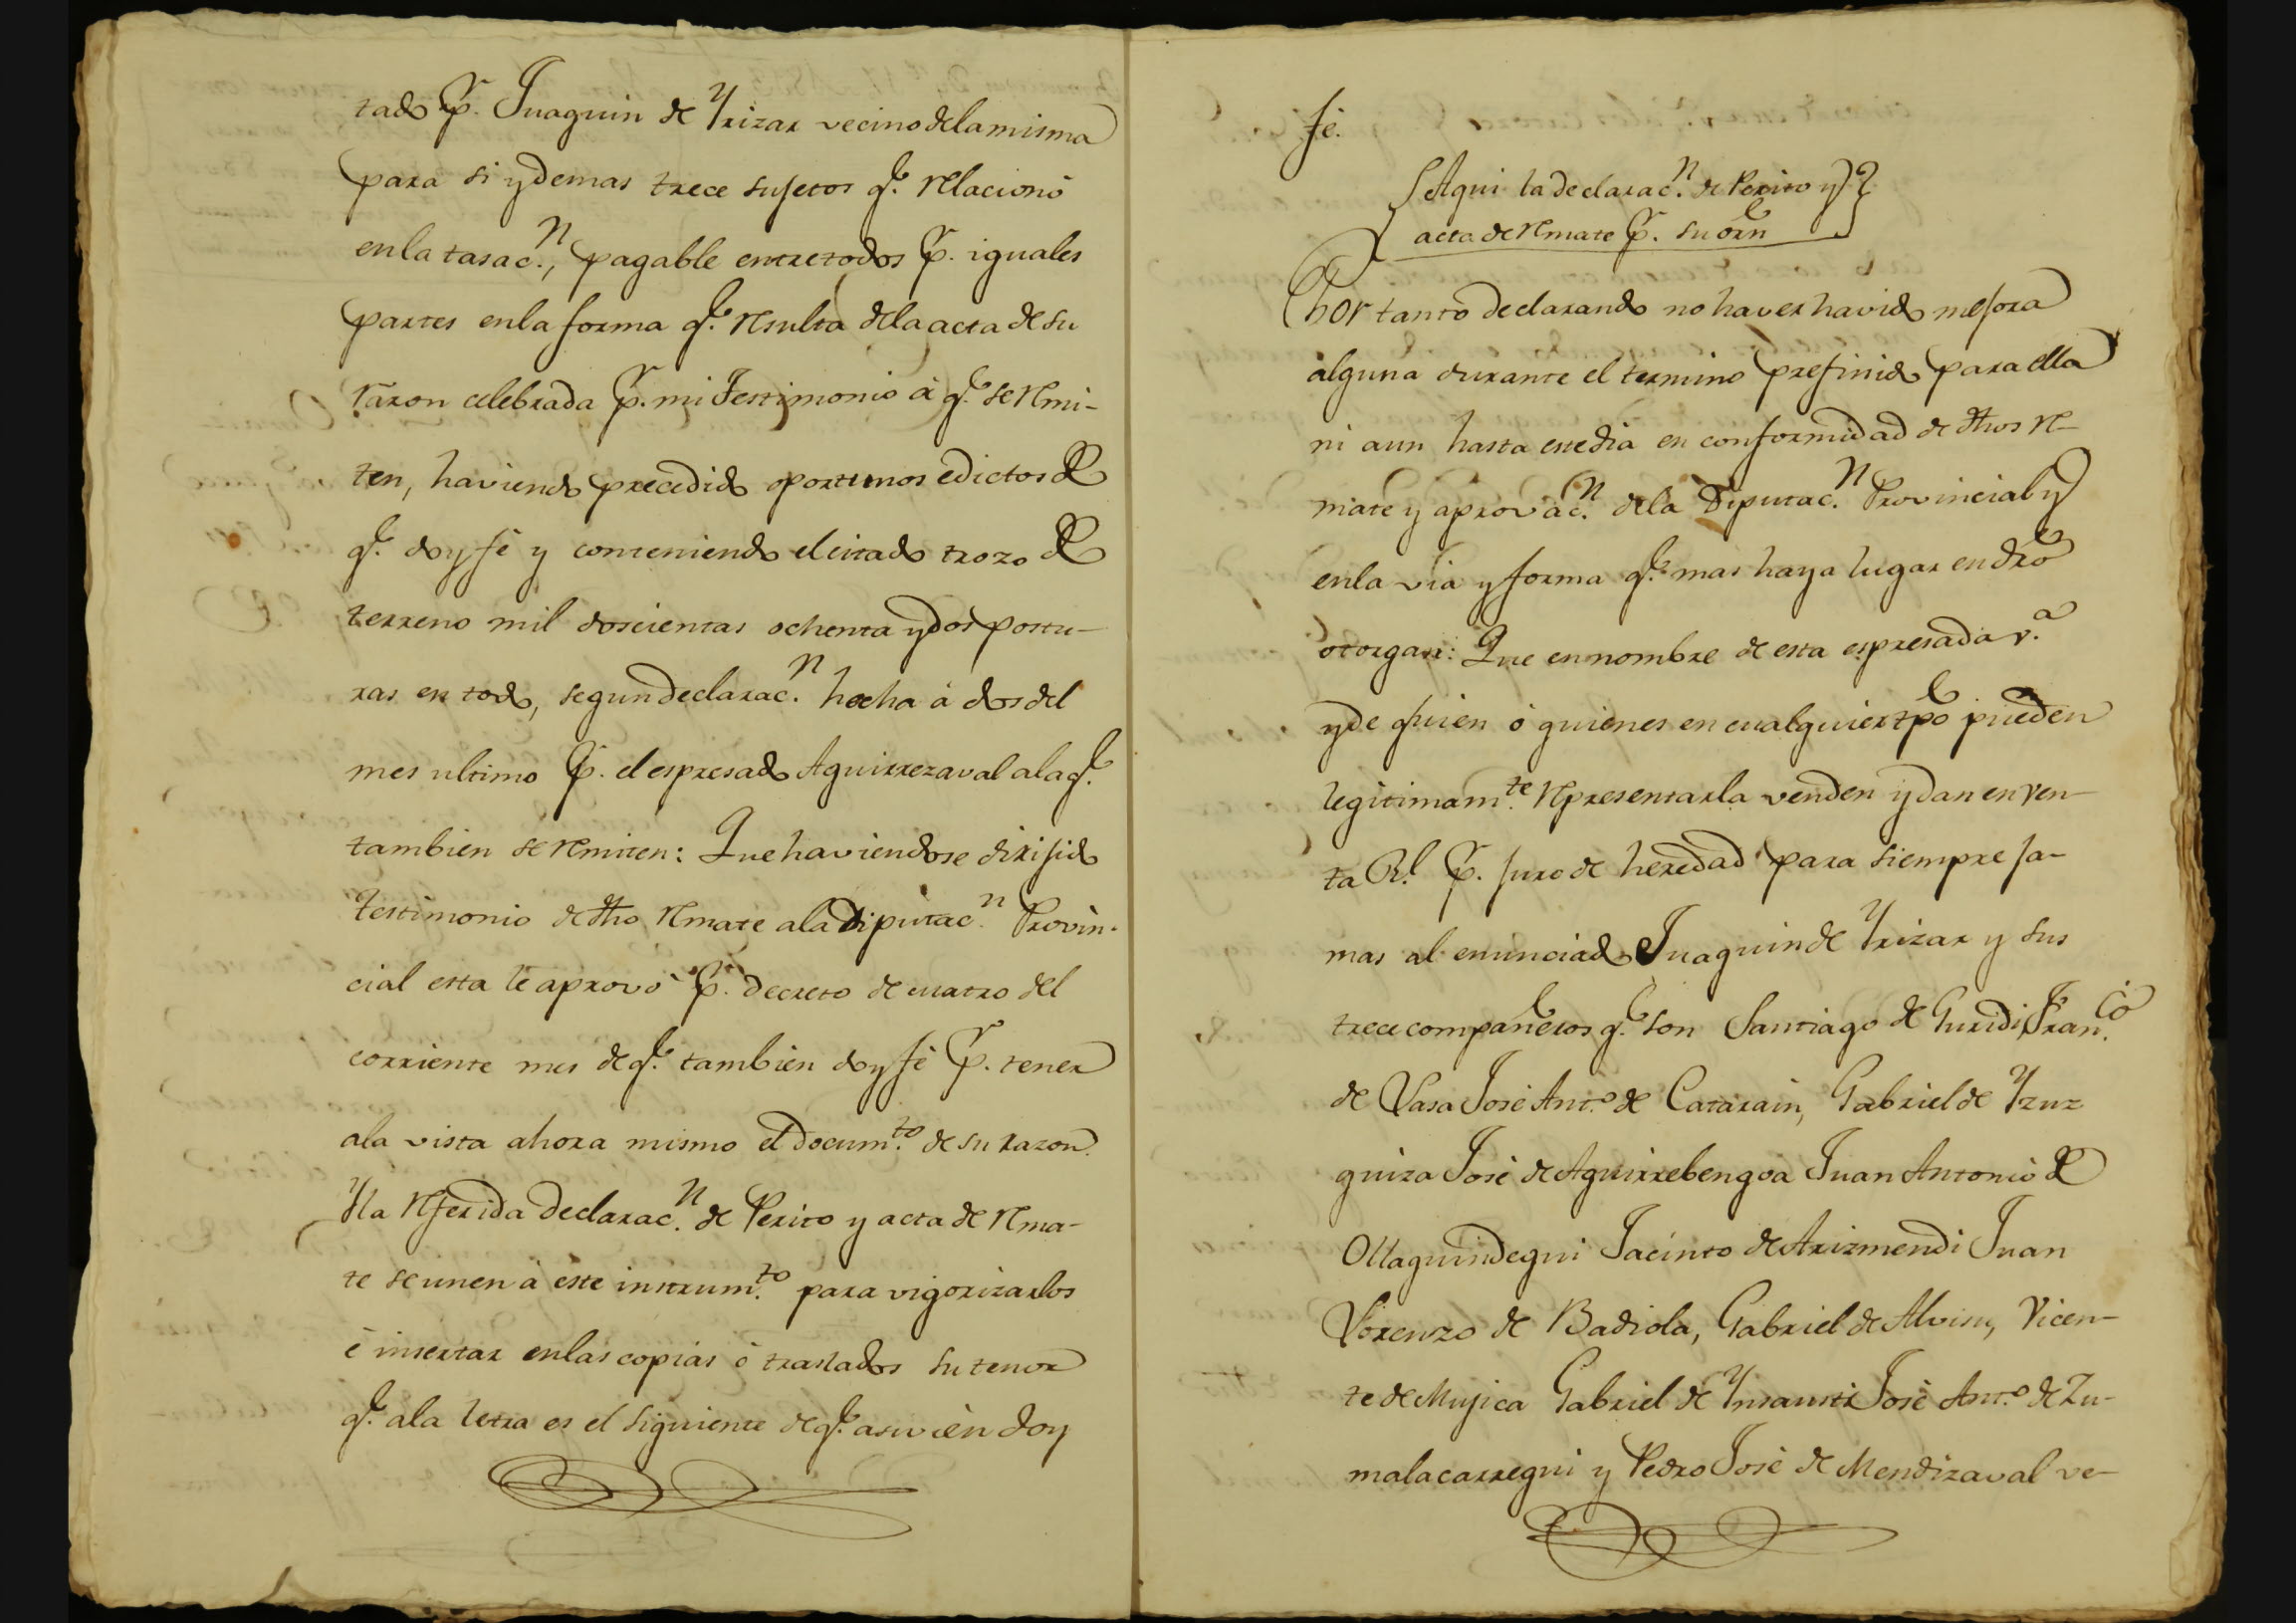 tado Pr. Juaquin de Yrizar vecino dela misma
para si y demas trece sujetos qe. relacionó
enla tasacn., pagable entre todos Pr. iguales
partes enla forma qe. resulta dela acta de su
razon celebrada Pr. mi Testimonio á qe. se remi-
ten, haviendo precedido oportunos edictos de
qe. doy fé y conteniendo el citado trozo de
terreno mil doscientas ochenta y dos postu-
ras en todo, segun declaracn. hecha á dos del
mes ultimo Pr. el espresado Aguirrezaval ala qe.
tambien se remiten: Que haviendose dirijido
testimonio de dho remate ala Diputacn. Provin-
cial esta le aprovó Pr. decreto de cuatro del
corriente mes de qe. tambien doy fé Pr. tener
ala vista ahora mismo el documto. de su razon.
Y la referida declaracn. de Perito y acta de rema-
te se unen á este instrumto. para vigorizarlos
é insertar enlas copias ó traslados su tenor
qe. ala letra es el siguiente de qe. asi bien doy
fé.
Aqui la declaracn. de Perito y
acta de remate Pr. su orn
Por tanto declarando no haver havido mejora
alguna durante el termino prefinido para ella
ni aun hasta este dia en conformidad de dhos re-
mate y aprovacn. dela Diputacn. Provincial y
enla via y forma qe. mas haya lugar en dro
otorgan: Que en nombre de esta espresada va.
y de quien ó quienes en cualquier tpo pueden
legitimamte. representarla venden y dan en ven-
ta Rl. Pr. juro de heredad para siempre ja-
mas al enunciado Juaquin de Yrizar y sus
trece compañeros qe. son Santiago de Guridi, Franco.
de Vasa José Anto. de Catarain, Gabriel de Yzuz
quiza José de Aguirrebengoa Juan Antonio de
Ollaquindegui Jacinto de Arizmendi Juan
Lorenzo de Badiola, Gabriel de Alvisu, Vicen-
te de Mujica Gabriel de Ynsausti José Anto. de Zu-
malacarregui y Pedro José de Mendizaval ve-